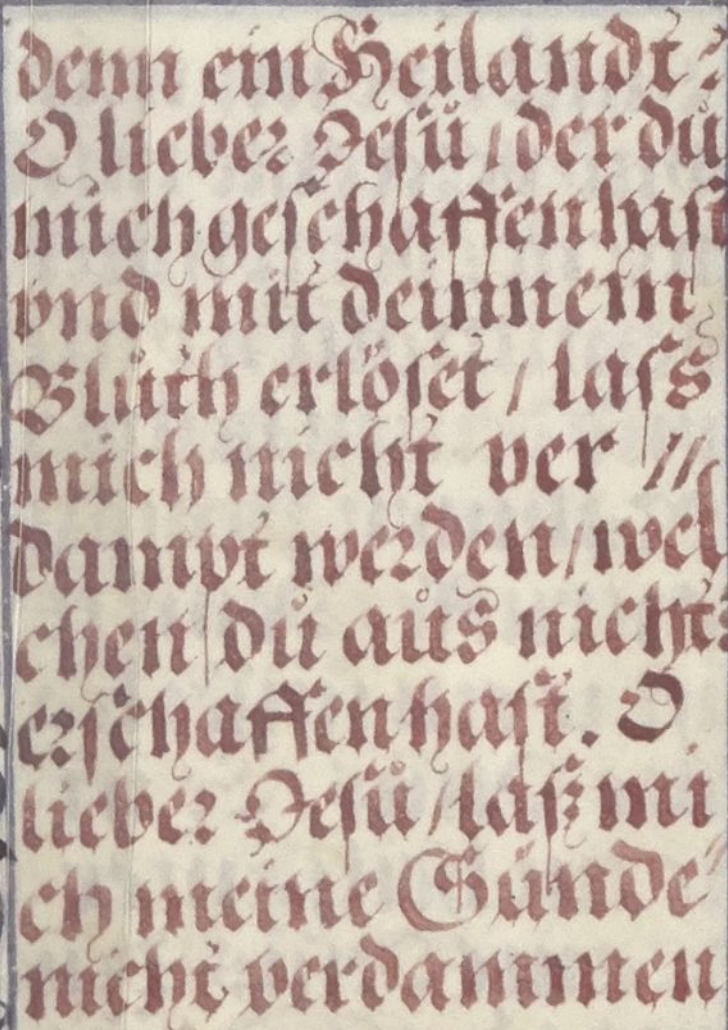 denn ein Heilandt?
O lieber Jesu / der du
mich geschaffen hast
vnd mit deinnem
Bluth erlöset / lass
mich nicht ver //
dampt werden / wel
chen du aus nicht
erschaffen hast. O
lieber Jesu / laß mi
ch meine Sünde
nicht verdammen